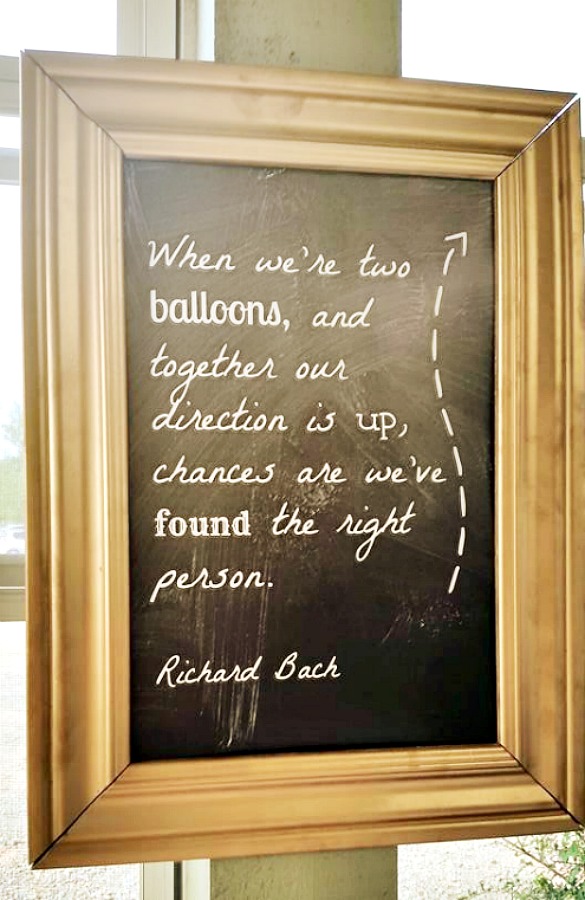 When we're two
balloons, and
together our
direction is up,
chances are we've
found the right
person.
Richard Bach